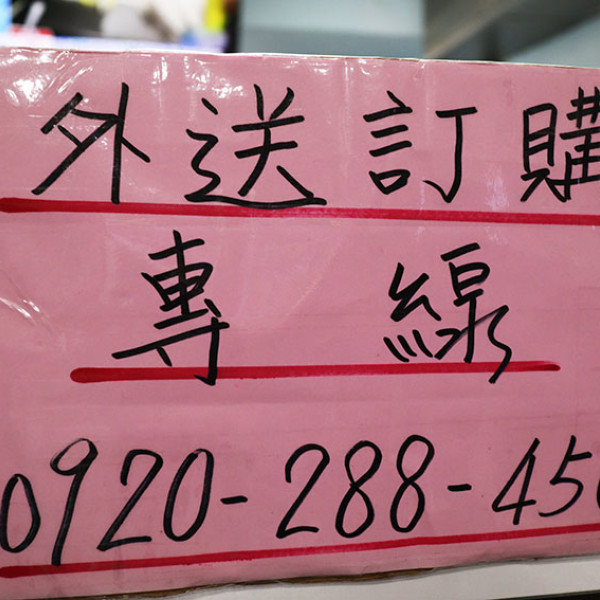 外送訂購
專線
0920-288-45